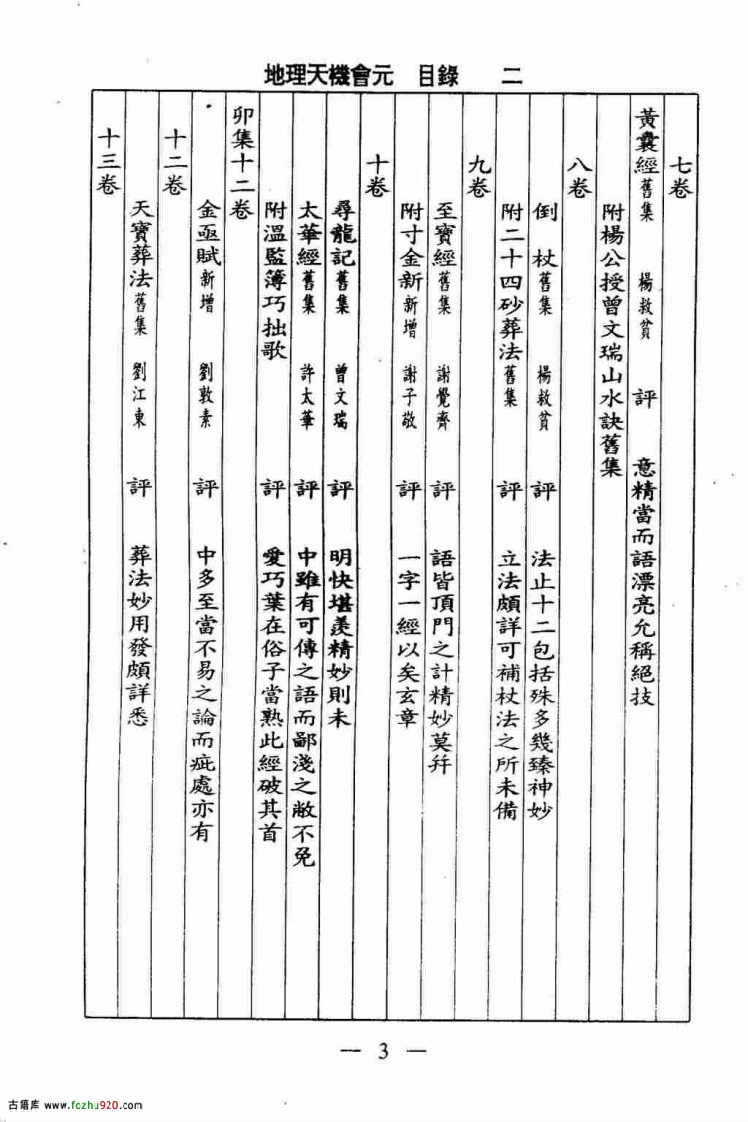 地理天機會元　目錄　二
七卷
黃囊經舊集　楊救貧　評　意精當而語漂亮允稱絕技
附楊公授曾文瑞山水訣舊集
八卷
倒杖舊集　楊救貧　評　法止十二包括殊多幾臻神妙
附二十四砂葬法舊集　評　立法頗詳可補杖法之所未備
九卷
至寶經舊集　謝覺齊　評　語皆頂門之計精妙莫幷
附寸金新新增　謝子敬　評　一字一經以矣玄章
十卷
尋龍記舊集　曾文瑞　評　明快堪羨精妙則未
太華經舊集　許太華　評　中雖有可傳之語而鄙淺之敝不免
附溫監簿巧拙歌　評　愛巧葉在俗子當熟此經破其首
卯集十二卷
金亟賦新增　劉敦素　評　中多至當不易之論而疵處亦有
十二卷
天寶葬法舊集　劉江東　評　葬法妙用發頗詳悉
十三卷
— 3 —
古籍库 www.fozhu920.com